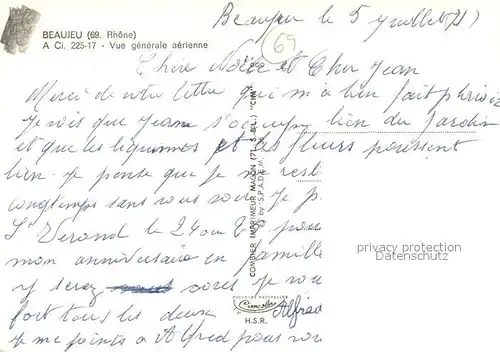 BEAUJEU (69. Rhône)
A Cl. 225-17 - Vue générale aérienne
Beaujeu le 5 juillet 71
69
Chère Noëlle et Cher Jean
Merci de votre lettre qui m'a bien fait plaisir
je vois que Jean s'occupe bien du Jardin
et que les légumes et les fleurs poussent
bien je pense que je ne rest
longtemps sans vous voir je p
St Verand le 24 ou pour
mon anniversaire en famille
y serez vous je vou
fort tous les deux Alfred
je me joints a Alfred pour vou
COMBIER IMPRIMEUR MACON (71) (S.A.R.L.) "CIM"
© by S.P.A.D.E.M.
H.S.R.
privacy protection
Datenschutz